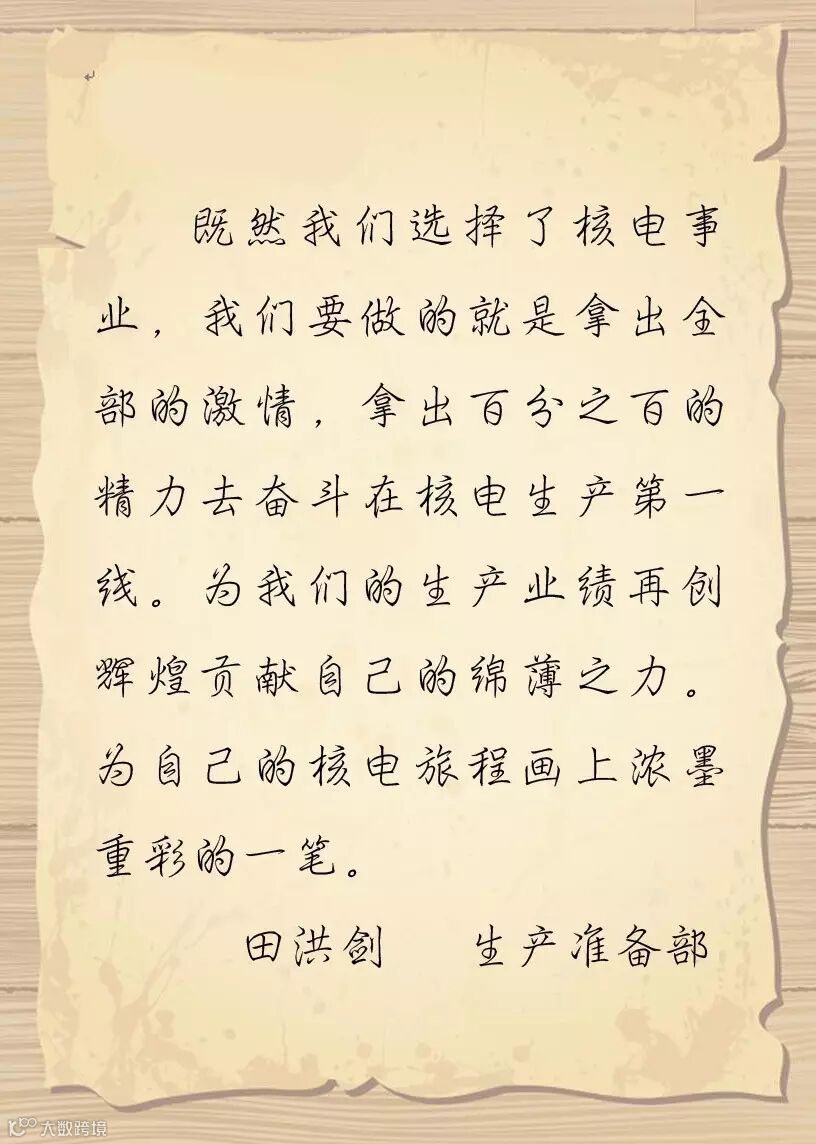 既然我们选择了核电事
业，我们要做的就是拿出全
部的激情，拿出百分之百的
精力去奋斗在核电生产第一
线。为我们的生产业绩再创
辉煌贡献自己的绵薄之力。
为自己的核电旅程画上浓墨
重彩的一笔。
田洪剑 生产准备部
大数跨境